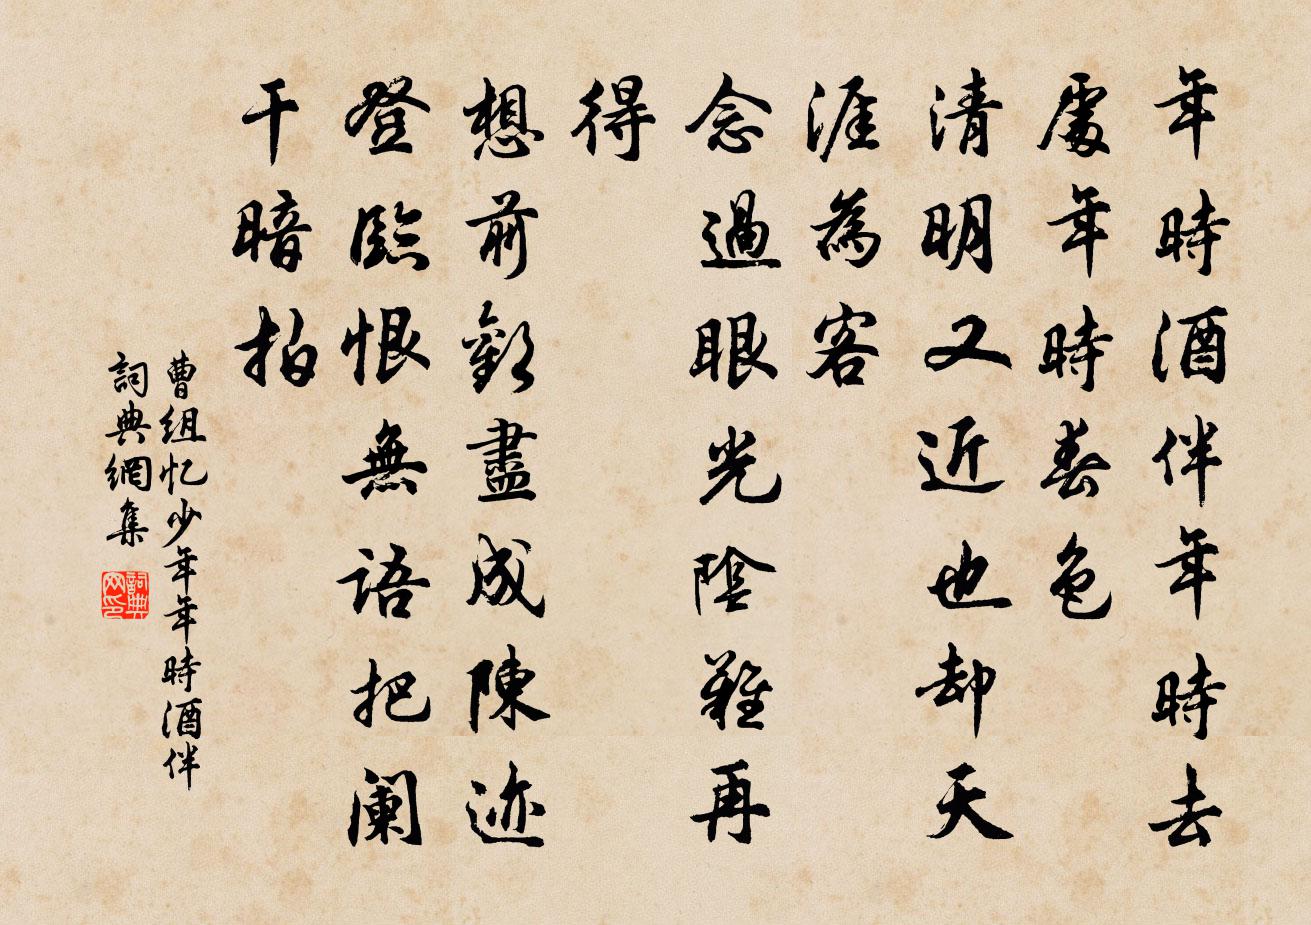 年時酒伴年時去
處年時春色
清明又近也却天
涯為客
念過眼光陰難再
得
想前歡盡成陳迹
登臨恨無語把阑
干暗拍
曹組忆少年年時酒伴
詞典網集
詞典网印